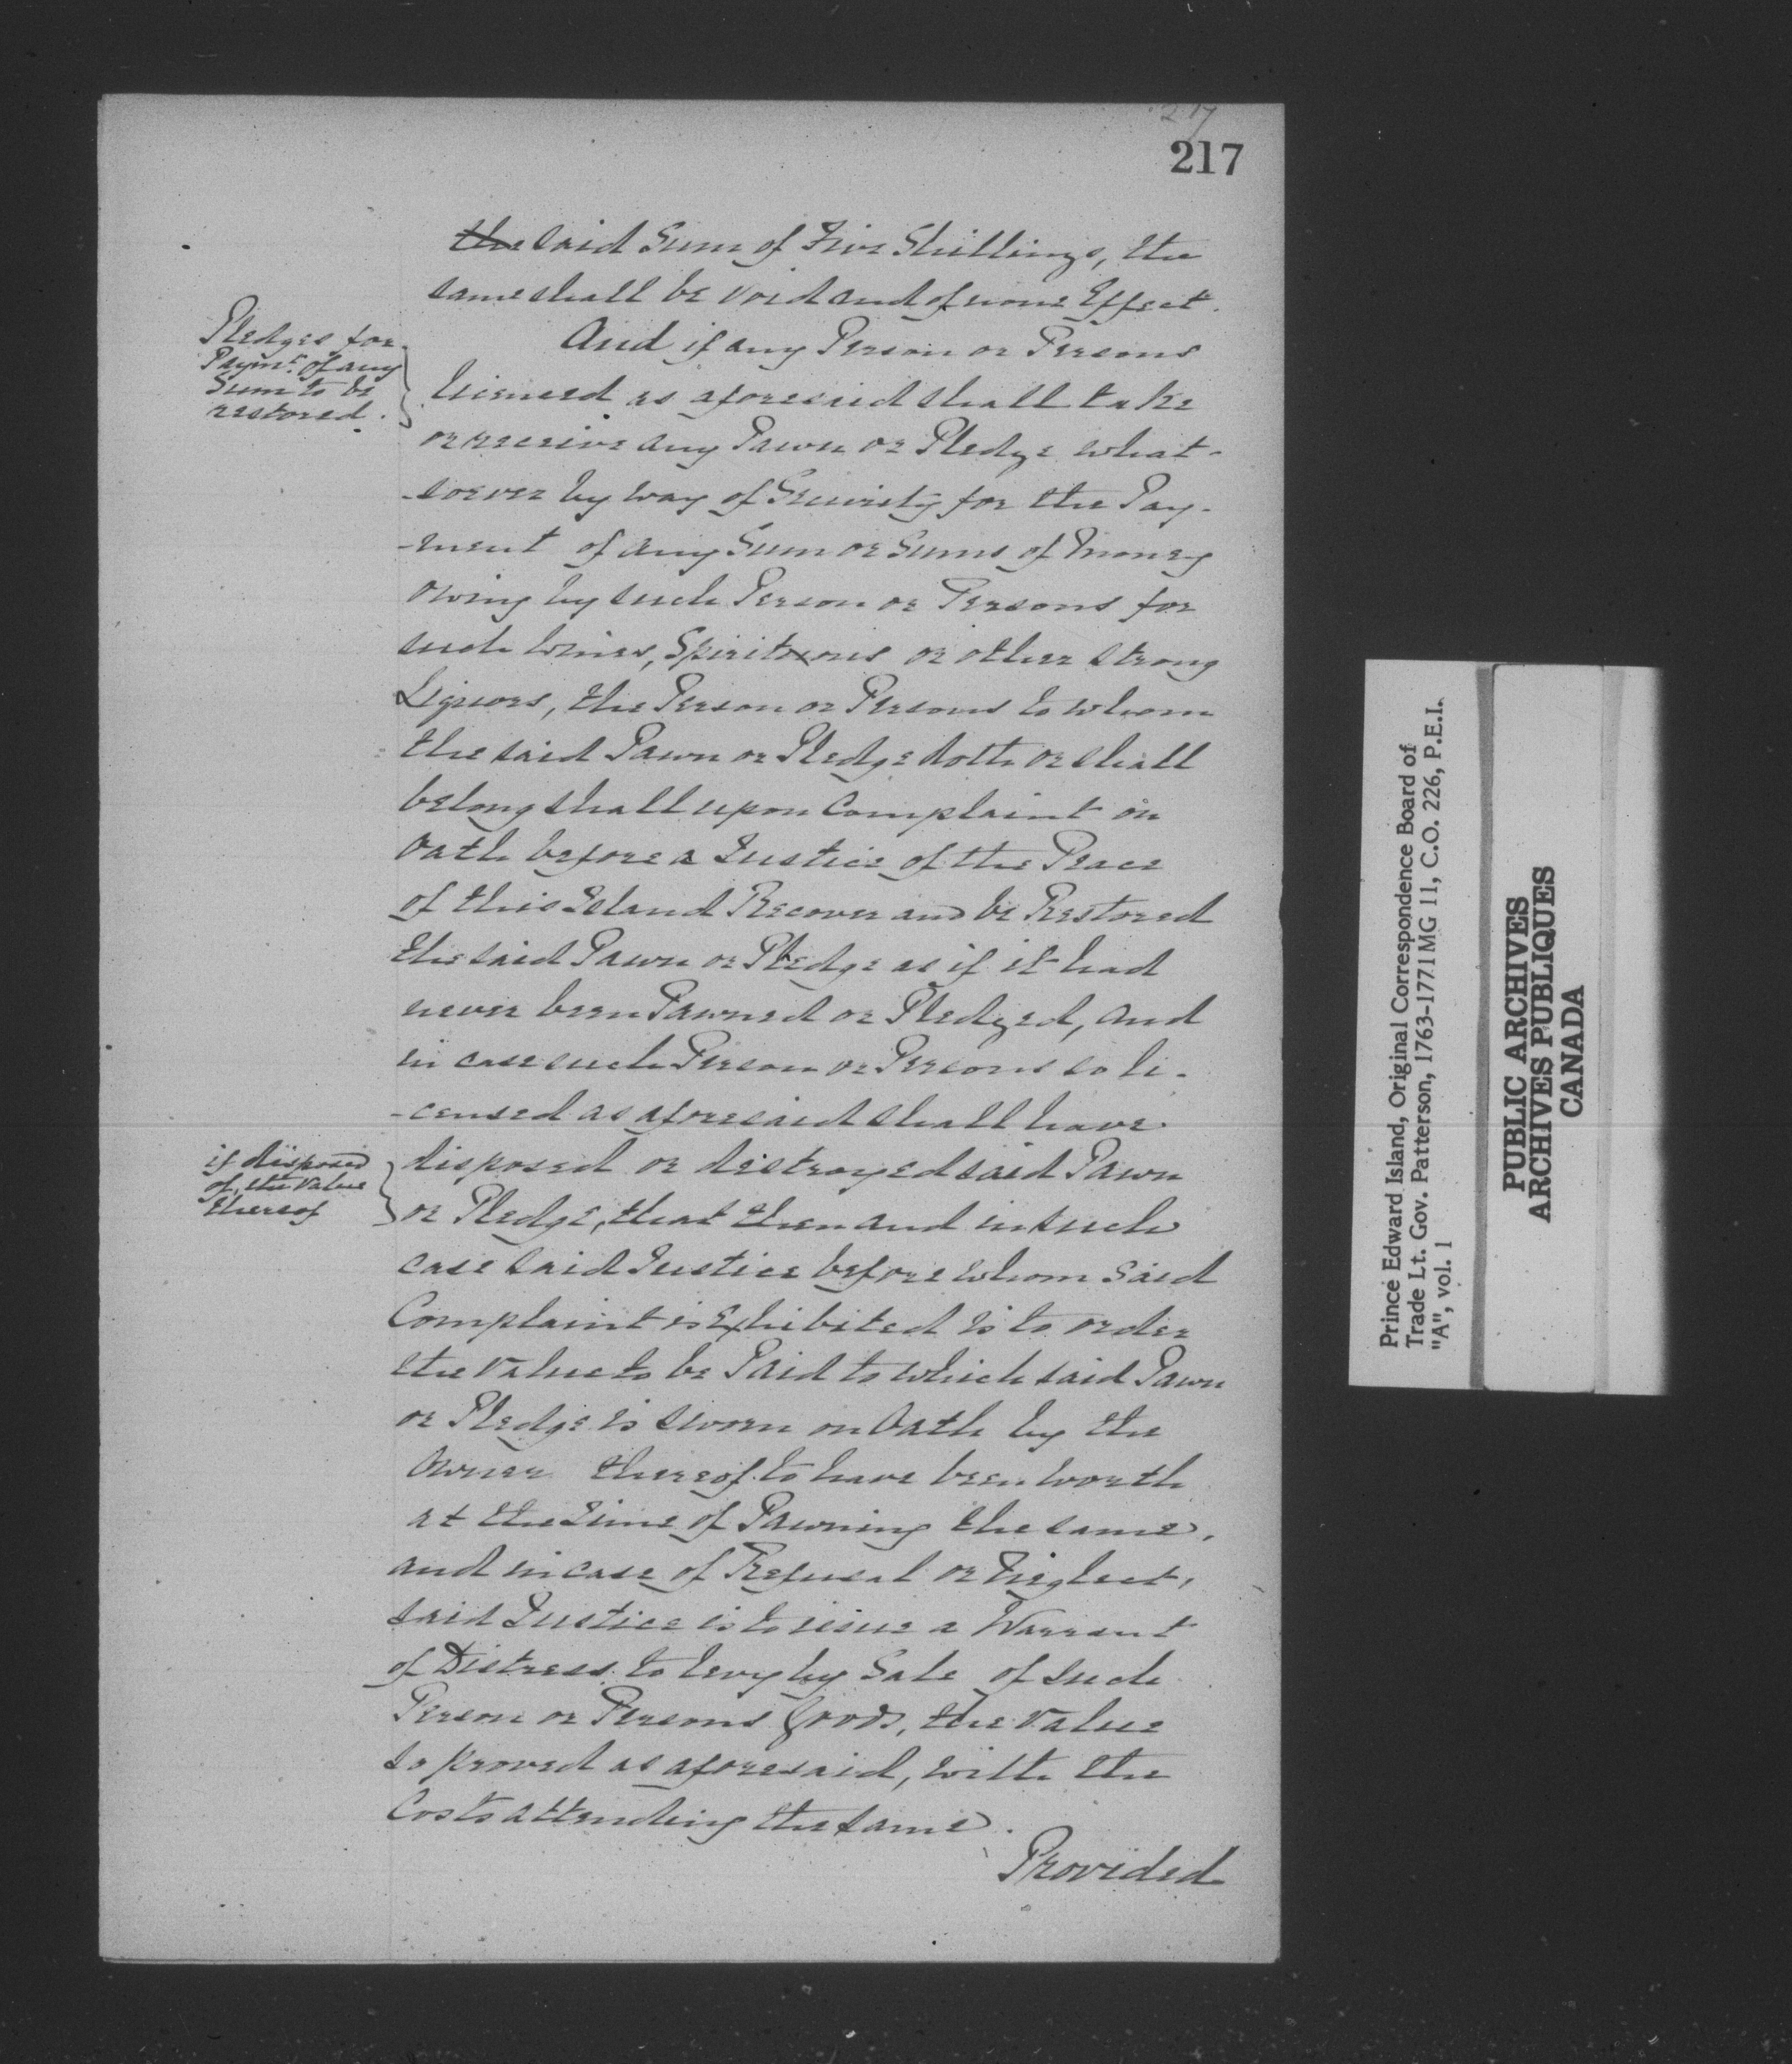 217
217
the said Sum of Five Shillings, the
same shall be void and of none Effect.
Pledges for
Paymt. of any
Sum to be
restored.
And if any Person or Persons
licensed as aforesaid shall take
or receive any Pawn or Pledge what-
-soever by way of Security for the Pay-
-ment of any Sum or Sums of Money
owing by such Person or Persons for
such Wines, Spirituous or other strong
Liquors, the Person or Persons to whom
the said Pawn or Pledge doth or shall
belong shall upon Complaint on
Oath before a Justice of the Peace
of this Island Recover and be Restored
the said Pawn or Pledge as if it had
never been Pawned or Pledged, and
in case such Person or Persons so li-
-censed as aforesaid shall have
if disposed
of, the value
thereof
disposed or destroyed said Pawn
or Pledge, that then and in such
case said Justice before whom said
Complaint is Exhibited is to order
the value to be Paid to which said Pawn
or Pledge is sworn on Oath by the
Owner thereof to have been worth
at the time of Pawning the same,
and in case of Refusal or Neglect,
said Justice is to issue a Warrant
of Distress to levy by Sale of such
Person or Persons Goods, the value
so proved as aforesaid, with the
Costs attending the same.
Provided
Prince Edward Island, Original Correspondence Board of
Trade Lt. Gov. Patterson, 1763-1771 MG 11, C.O. 226, P.E.I.
"A", vol. 1
PUBLIC ARCHIVES
ARCHIVES PUBLIQUES
CANADA